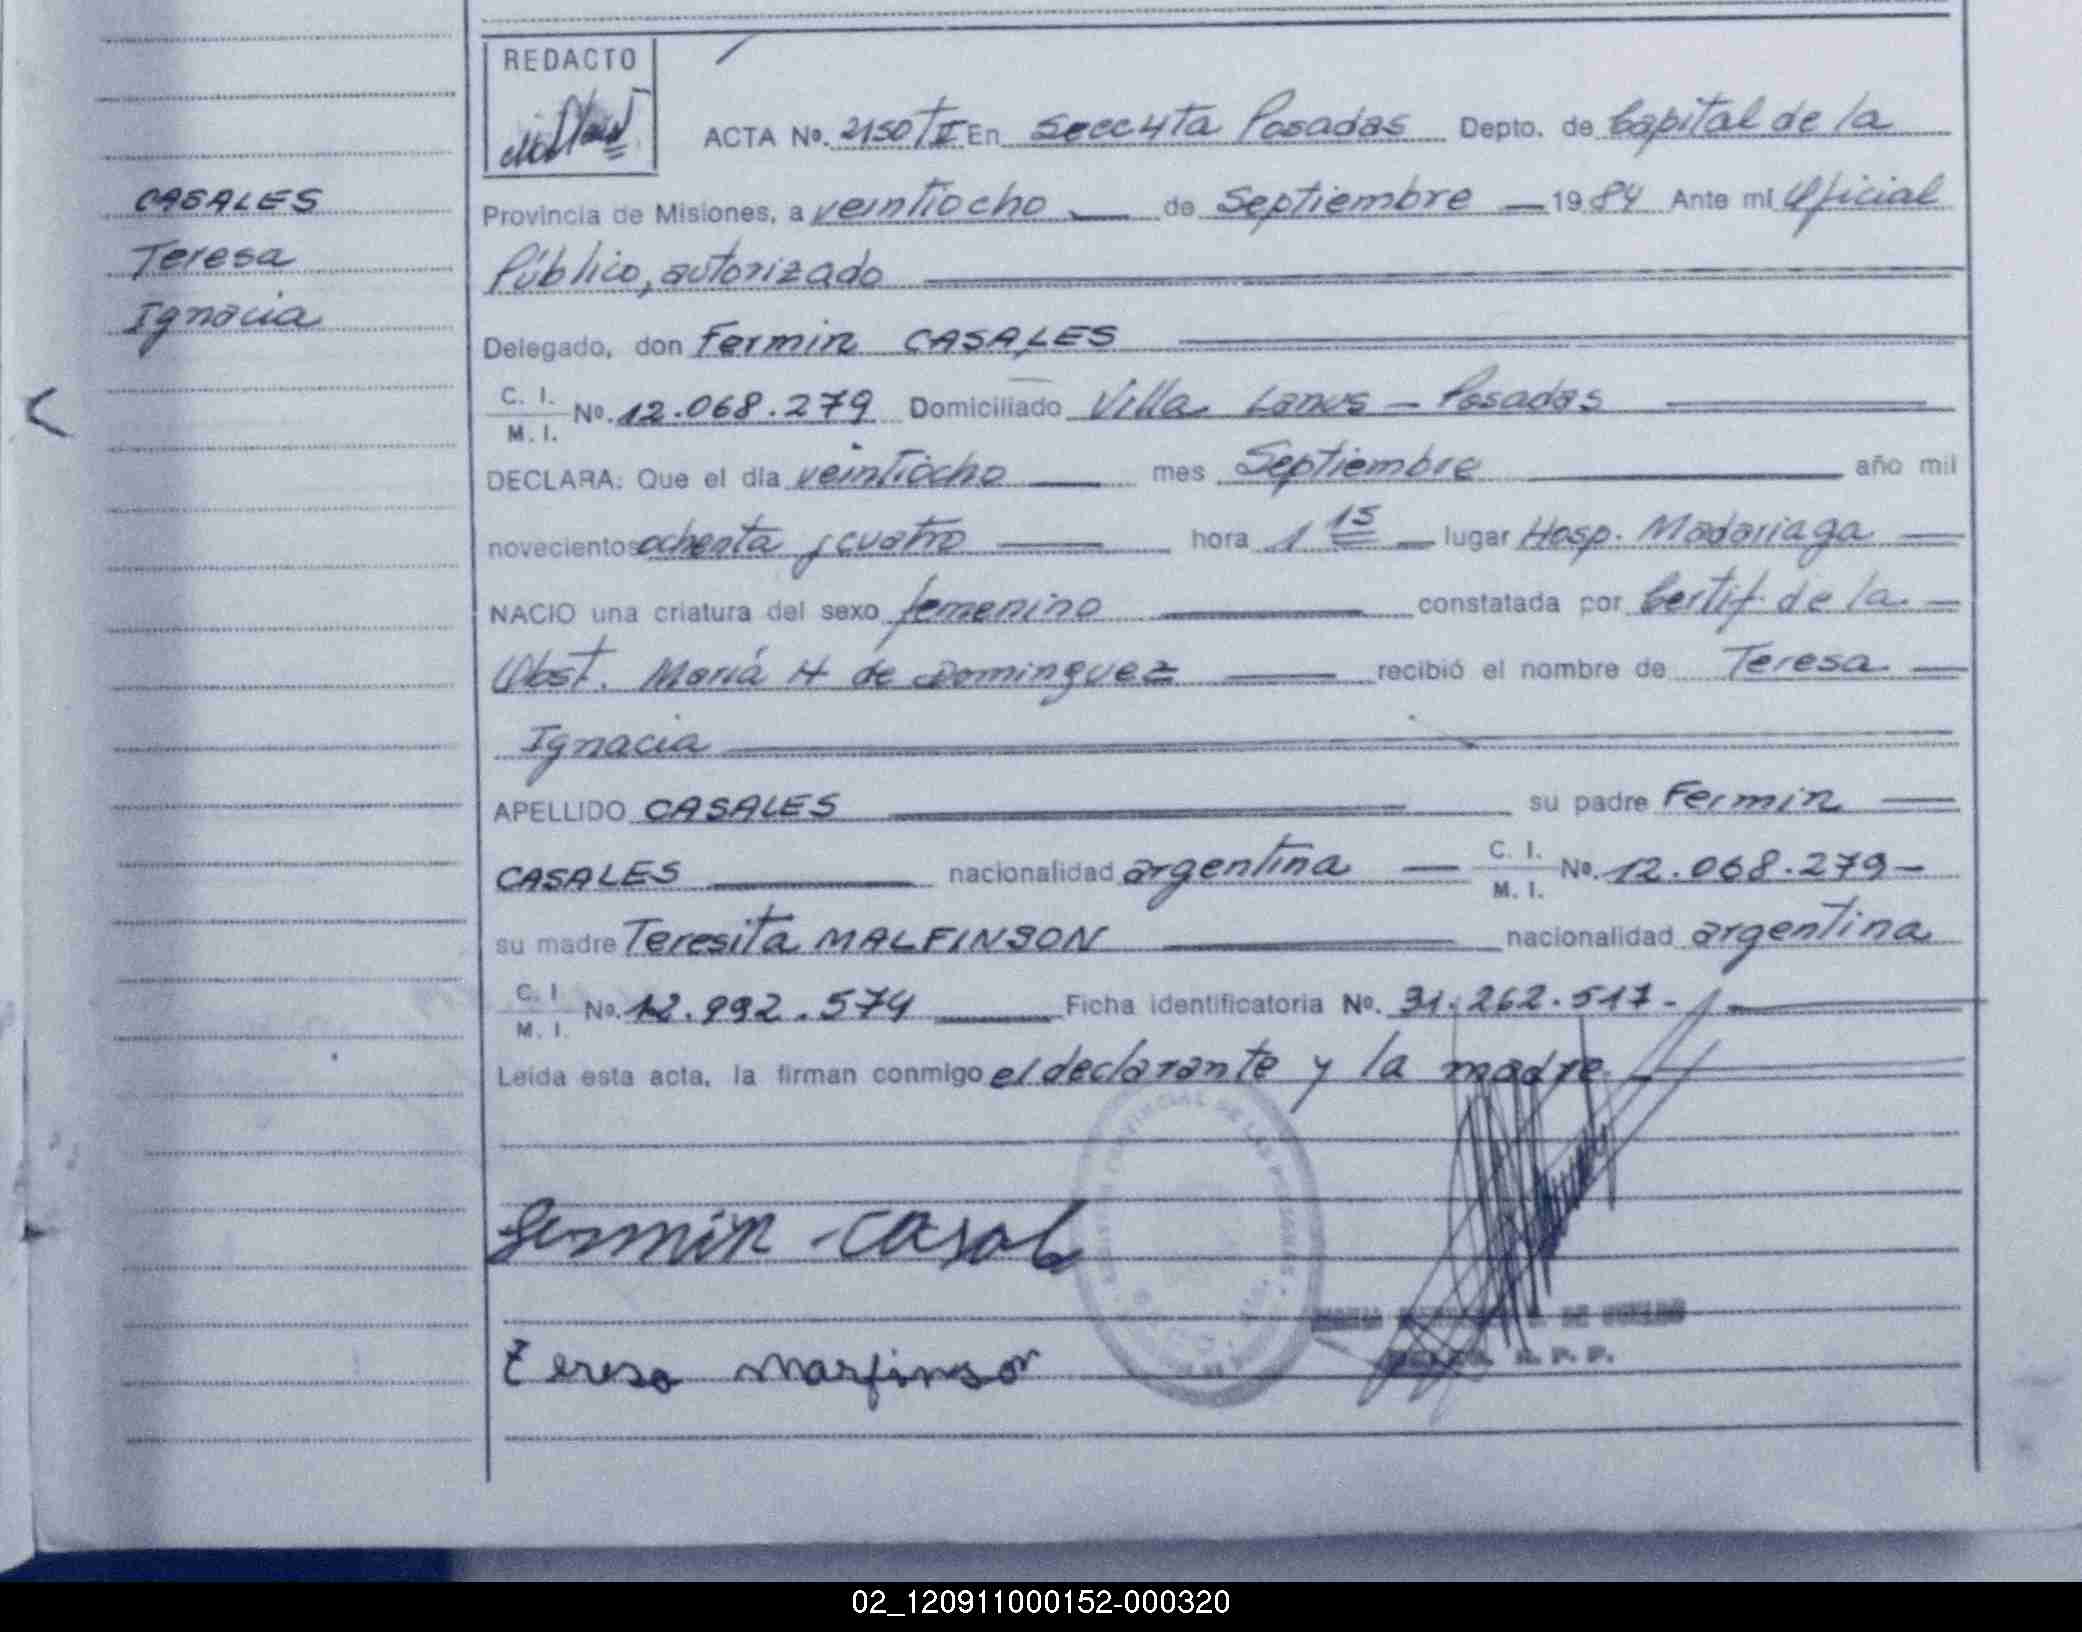 REDACTO
ACTA Nº. 2150 TII En Secc 4ta Posadas Depto. de Capital de la
Provincia de Misiones, a veintiocho de Septiembre 1984 Ante mi Oficial
Público, autorizado
CASALES
Teresa
Ignacia
Delegado, don Fermin CASALES
C. I.
M. I. Nº. 12.068.279 Domiciliado Villa Lanus - Posadas
DECLARA: Que el día veintiocho mes Septiembre año mil
novecientos ochenta y cuatro hora 1 15 lugar Hosp. Madariaga
NACIO una criatura del sexo femenino constatada por Certif. de la
Obst. Maria H de Dominguez recibió el nombre de Teresa
Ignacia
APELLIDO CASALES su padre Fermin
CASALES nacionalidad argentina C. I.
M. I. Nº. 12.068.279-
su madre Teresita MALFINSON nacionalidad argentina
C. I.
M. I. Nº. 12.992.574 Ficha identificatoria Nº. 31.262.517-
Leída esta acta, la firman conmigo el declarante y la madre
Fermin Casal
Teresa Marfinson
02_120911000152-000320